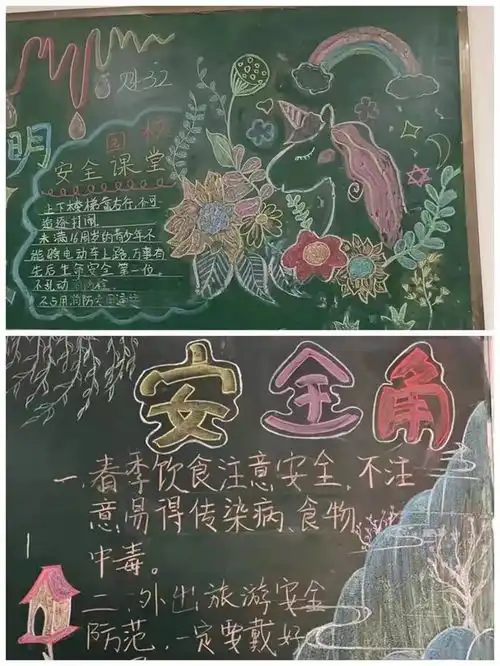 明
安全课堂
上下楼梯靠右行，不可
追逐打闹。
未满16周岁的青少年不
能骑电动车上路，万事有
先后生命安全第一位。
不乱动
安全角
一、春季饮食注意安全，不注
意易得传染病、食物
中毒。
二、外出旅游安全
防范，一定要戴好